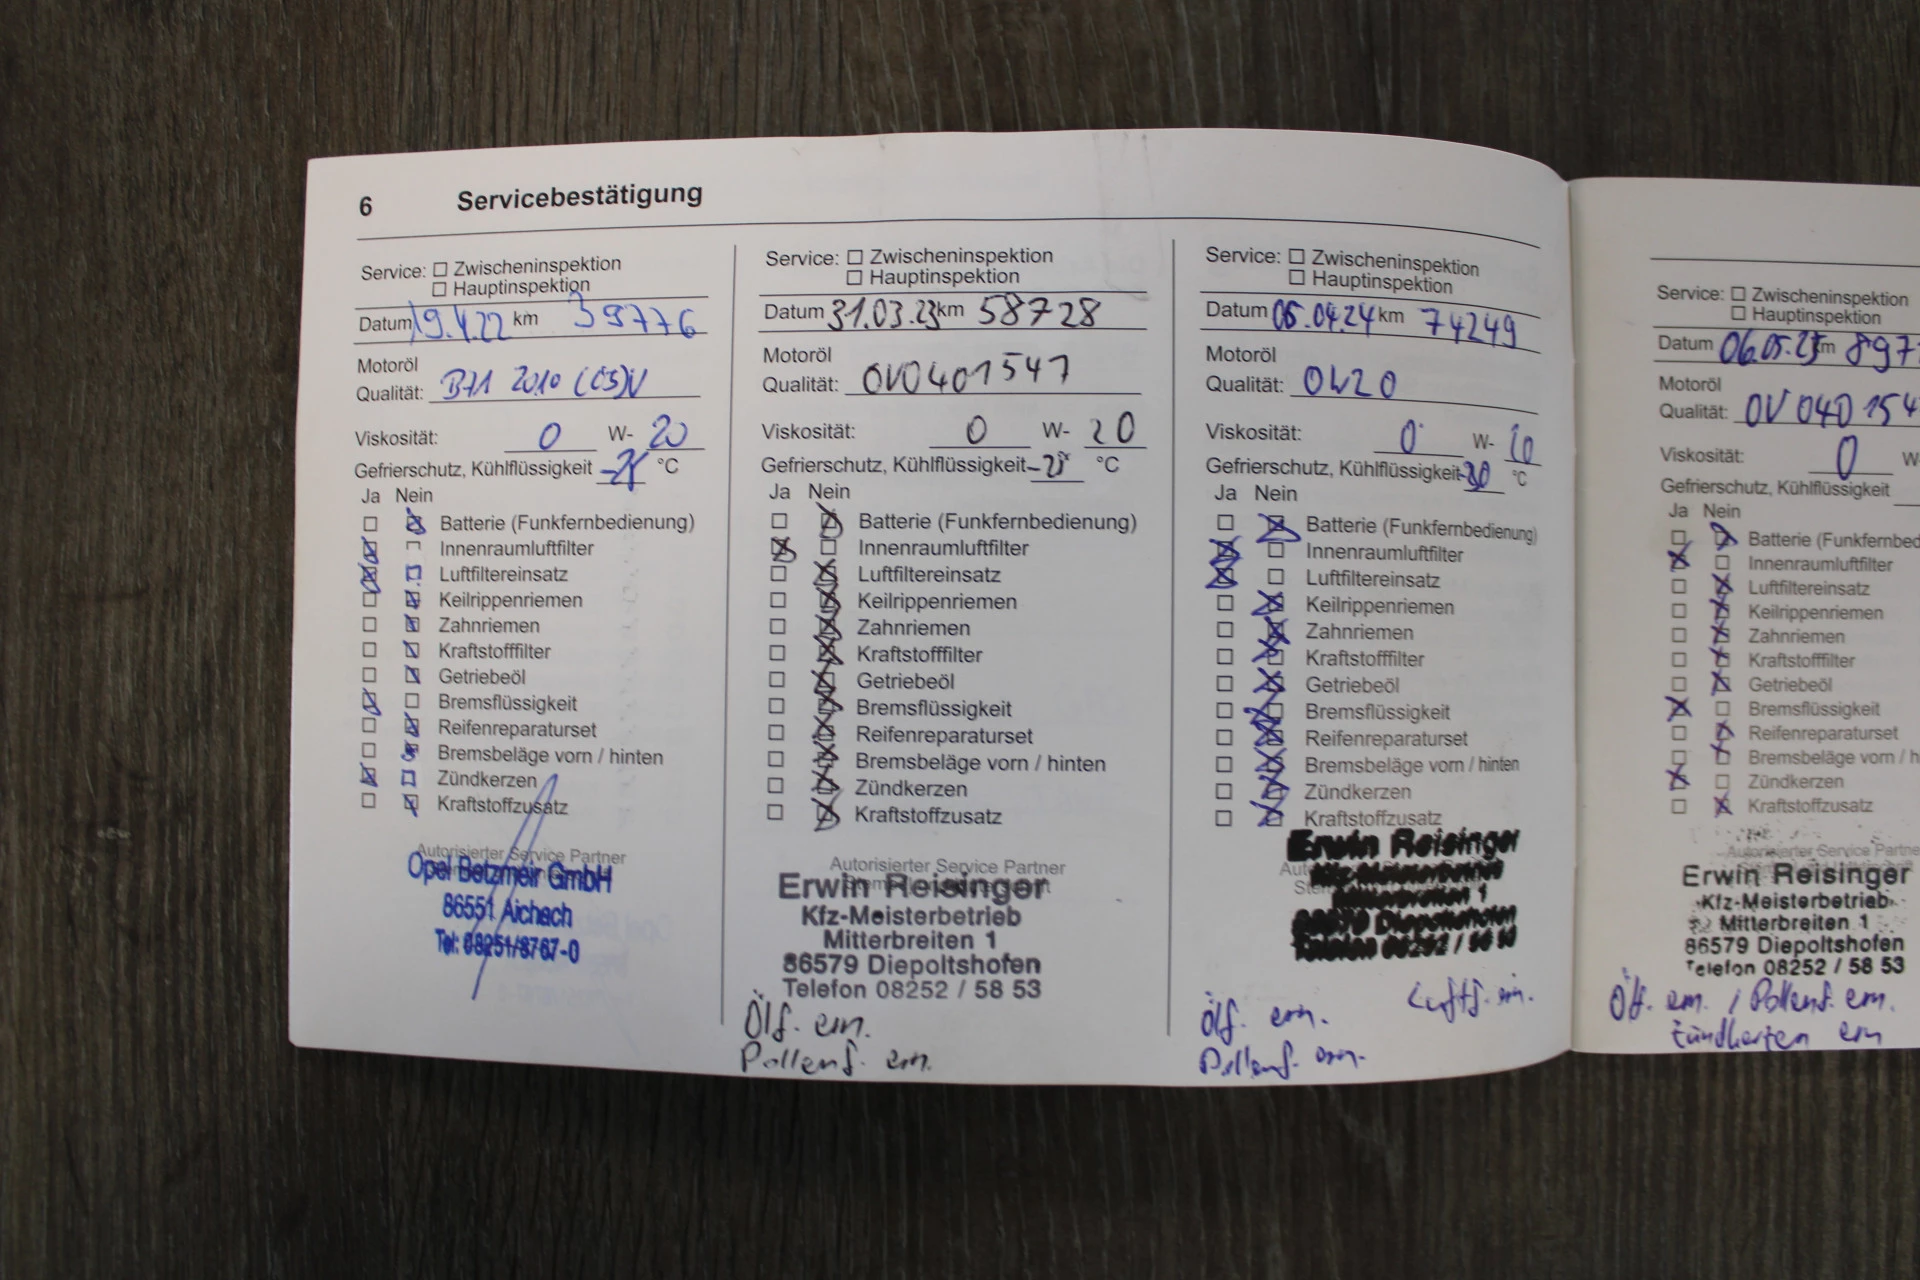 6 Servicebestätigung
Service: Zwischeninspektion
Hauptinspektion
Datum 19.4.22 km 39776
Motoröl
Qualität: B71 2010 (CS)V
Viskosität: 0 W- 20
Gefrierschutz, Kühlflüssigkeit °C
Ja Nein
Batterie (Funkfernbedienung)
Innenraumluftfilter
Luftfiltereinsatz
Keilrippenriemen
Zahnriemen
Kraftstofffilter
Getriebeöl
Bremsflüssigkeit
Reifenreparaturset
Bremsbeläge vorn / hinten
Zündkerzen
Kraftstoffzusatz
Autorisierter Service Partner
Opel Betzmeir GmbH
86551 Aichach
Tel: 08251/8767-0
Service: Zwischeninspektion
Hauptinspektion
Datum 31.03.23 km 58728
Motoröl
Qualität: 0V0401547
Viskosität: 0 W- 20
Gefrierschutz, Kühlflüssigkeit °C
Ja Nein
Batterie (Funkfernbedienung)
Innenraumluftfilter
Luftfiltereinsatz
Keilrippenriemen
Zahnriemen
Kraftstofffilter
Getriebeöl
Bremsflüssigkeit
Reifenreparaturset
Bremsbeläge vorn / hinten
Zündkerzen
Kraftstoffzusatz
Autorisierter Service Partner
Erwin Reisinger
Kfz-Meisterbetrieb
Mitterbreiten 1
86579 Diepoltshofen
Telefon 08252 / 58 53
Ölf. ern.
Pollenf. ern.
Service: Zwischeninspektion
Hauptinspektion
Datum 05.04.24 km 74249
Motoröl
Qualität: 0W20
Viskosität: 0 W-
Gefrierschutz, Kühlflüssigkeit -30 °C
Ja Nein
Batterie (Funkfernbedienung)
Innenraumluftfilter
Luftfiltereinsatz
Keilrippenriemen
Zahnriemen
Kraftstofffilter
Getriebeöl
Bremsflüssigkeit
Reifenreparaturset
Bremsbeläge vorn / hinten
Zündkerzen
Kraftstoffzusatz
Erwin Reisinger
Kfz-Meisterbetrieb
Mitterbreiten 1
86579 Diepoltshofen
Telefon 08252 / 58 53
Luftf. ern.
Ölf. ern.
Pollenf. ern.
Service: Zwischeninspektion
Hauptinspektion
Datum 06.05.25 km 897
Motoröl
Qualität: 0V 040 154
Viskosität: 0 W
Gefrierschutz, Kühlflüssigkeit
Ja Nein
Batterie (Funkfernbed
Innenraumluftfilter
Luftfiltereinsatz
Keilrippenriemen
Zahnriemen
Kraftstofffilter
Getriebeöl
Bremsflüssigkeit
Reifenreparaturset
Bremsbeläge vorn / h
Zündkerzen
Kraftstoffzusatz
Autorisierter Service Partne
Erwin Reisinger
Kfz-Meisterbetrieb
Mitterbreiten 1
86579 Diepoltshofen
Telefon 08252 / 58 53
Ölf. ern. / Pollenf. ern.
Zündkerzen ern